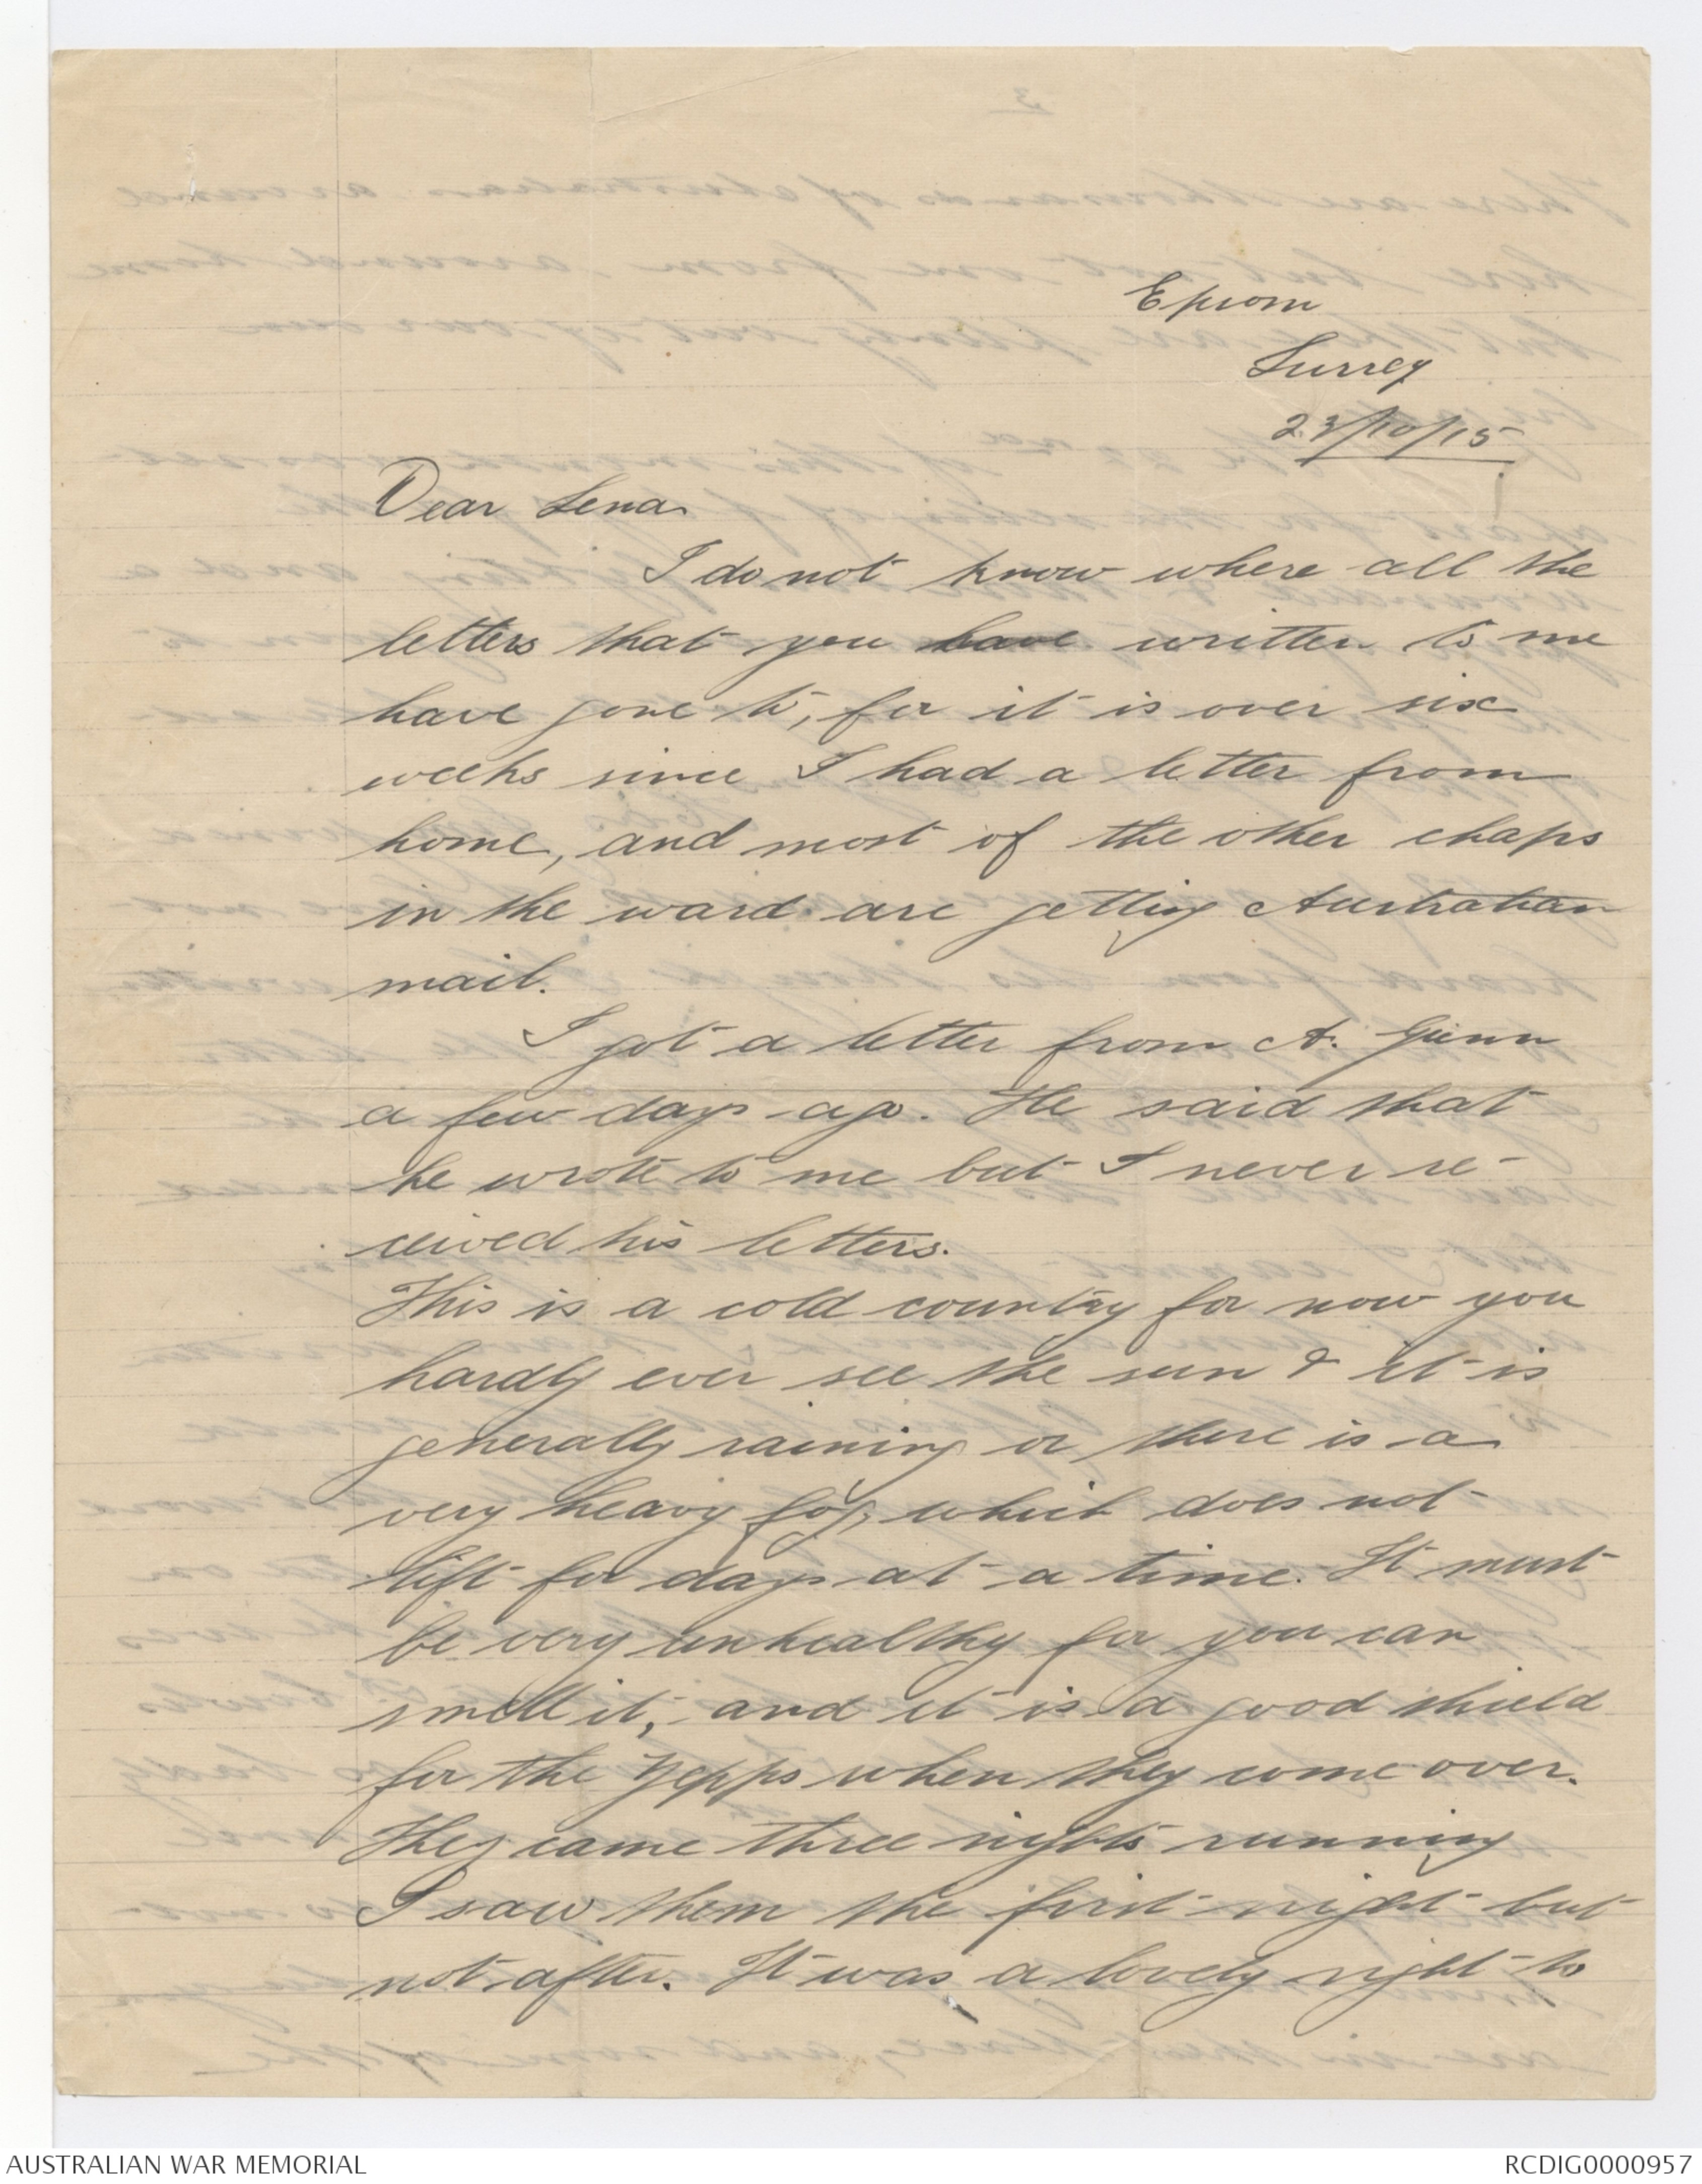 Epsom
Surrey
23/10/15
Dear Lena
I do not know where all the
letters that you have written to me
have gone to, for it is over six
weeks since I had a letter from
home, and most of the other chaps
in the ward are getting Australian
mail.
I got a letter from A. Gunn
a few days ago. He said that
he wrote to me but I never re-
ceived his letters.
This is a cold country for now you
hardly ever see the sun & it is
generally raining or there is a
very heavy fog, which does not
lift for days at a time. It must
be very unhealthy for you can
smell it, and it is a good shield
for the Zepps when they come over.
They came three nights running
I saw them the first night but
not after. It was a lovely sight to
AUSTRALIAN WAR MEMORIAL
RCDIG0000957